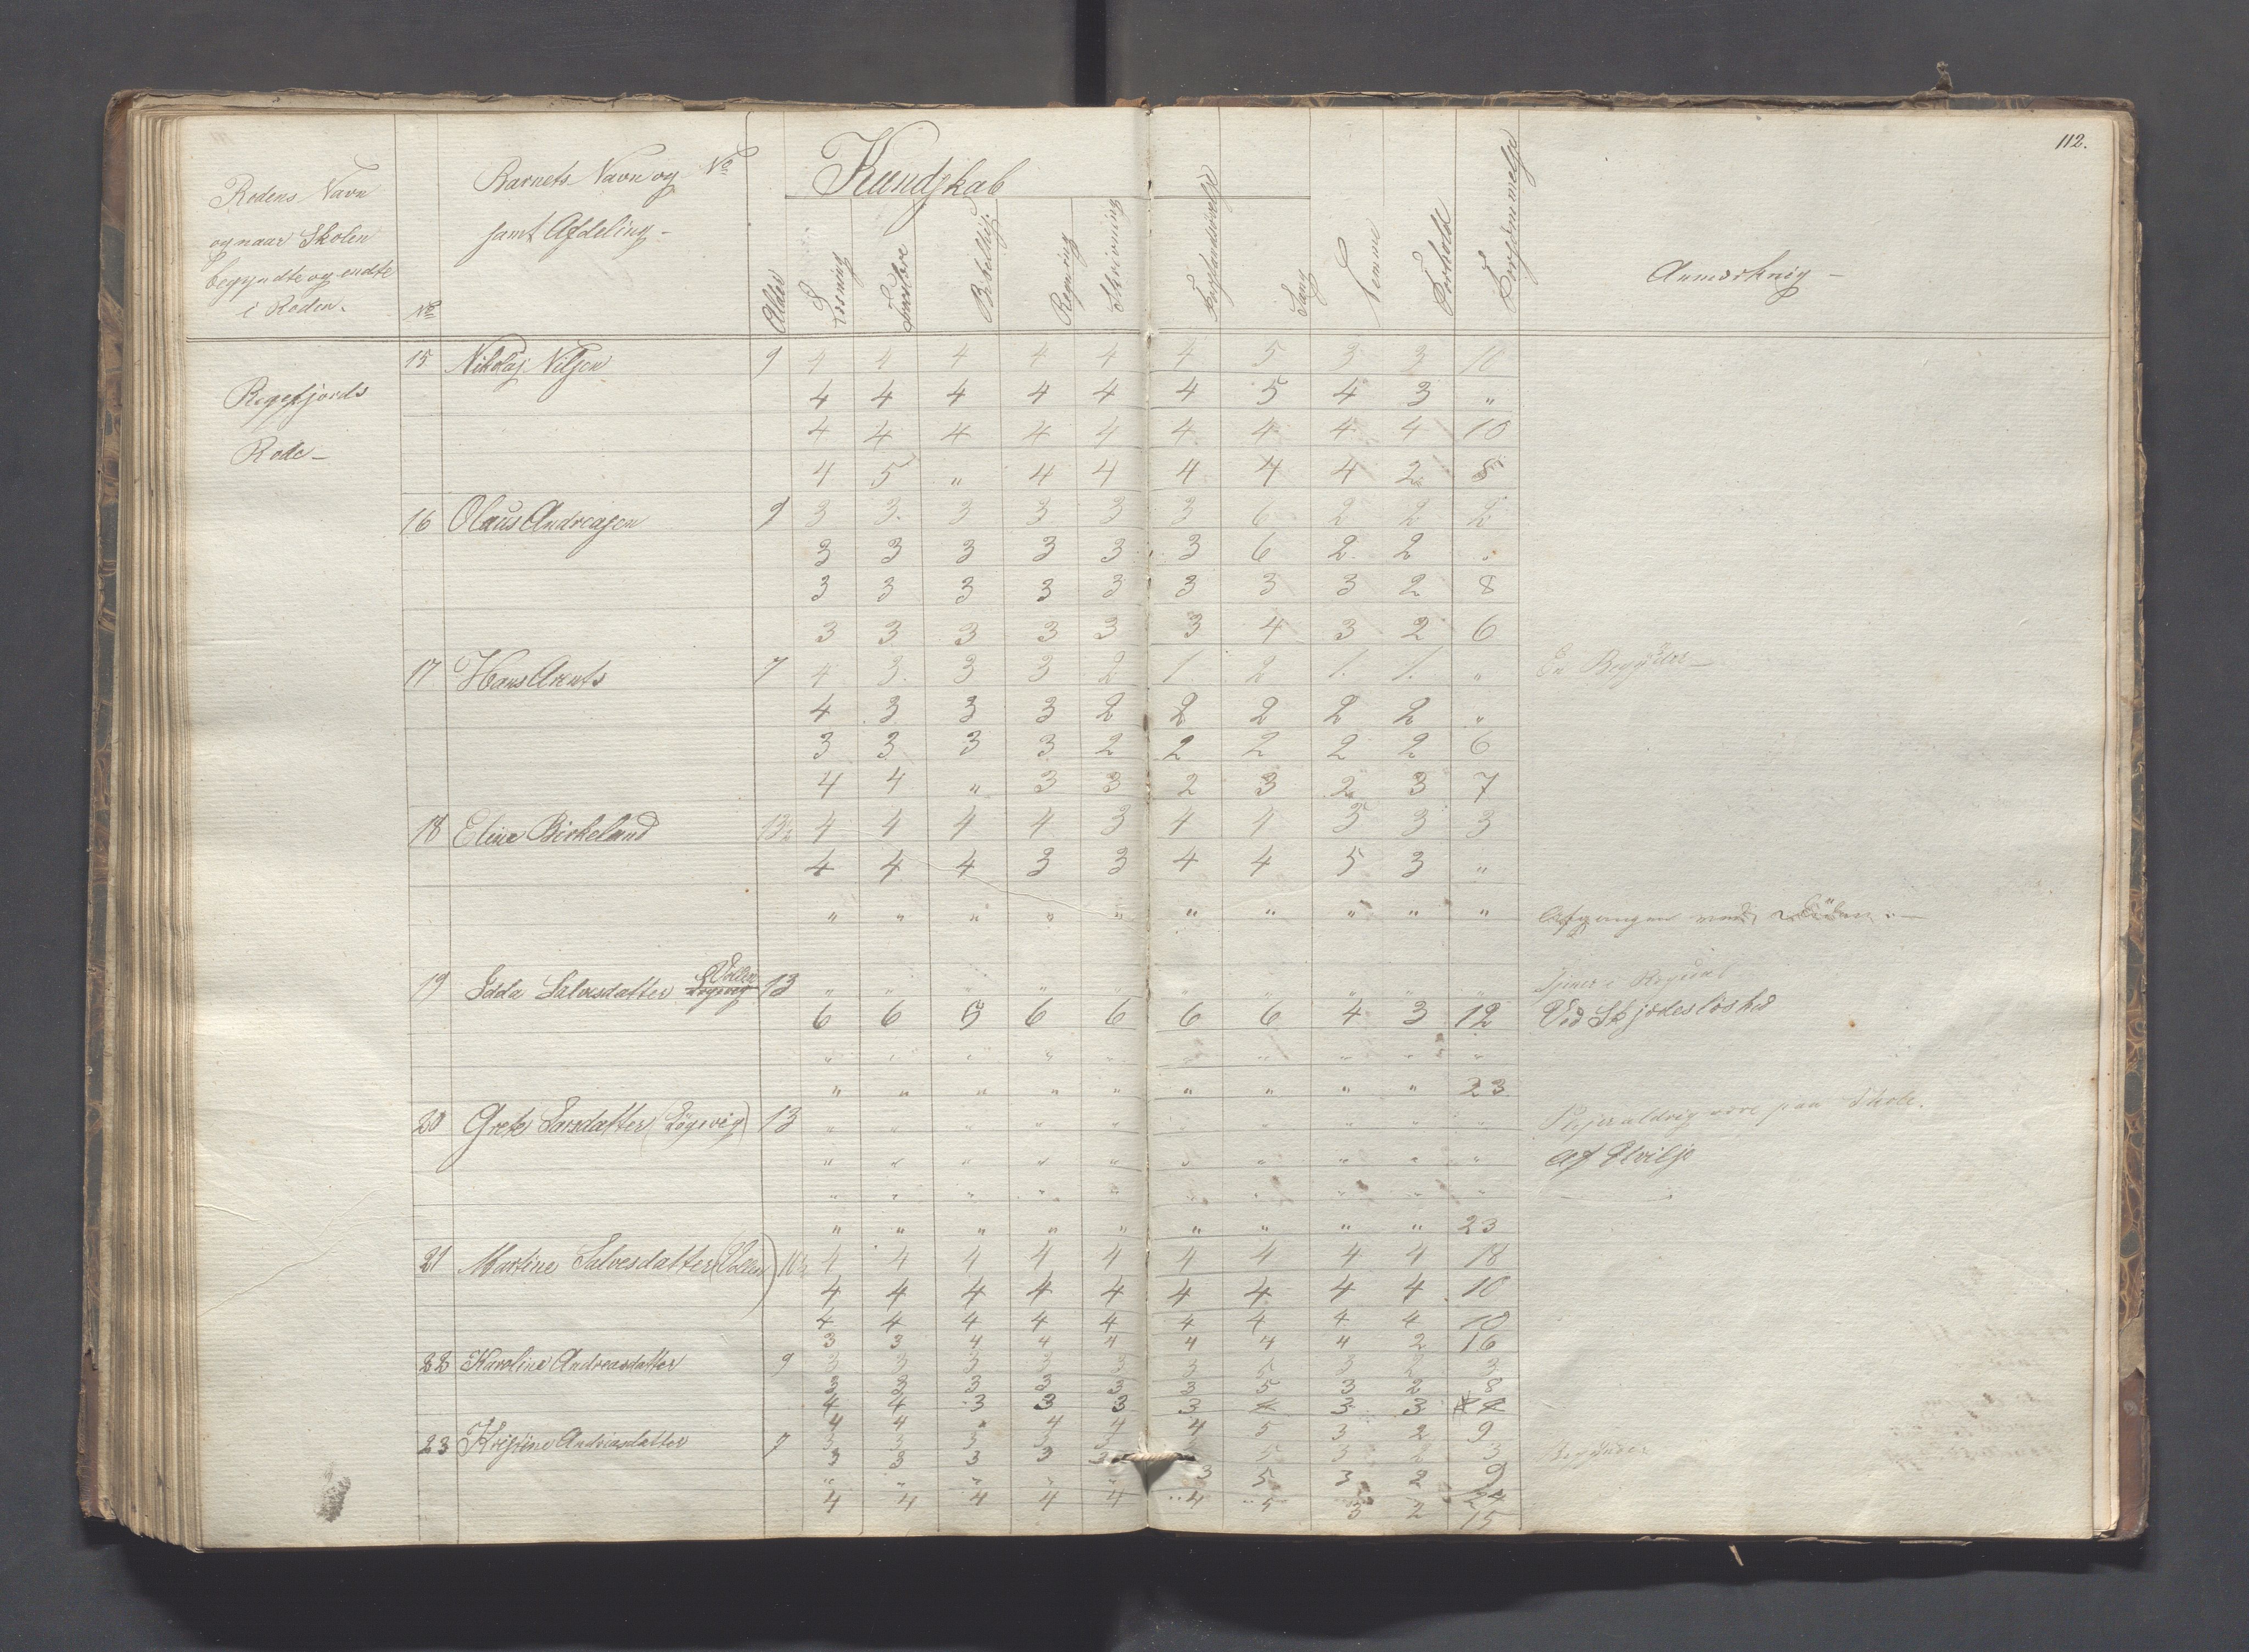 112.
Rodens Navn
og naar Skolen
begyndte og endte
i Roden.
No
Barnets Navn og No
samt Afdeling
Alder
Kundskab
Læsning
Troeslære
Bibelhist.
Regning
Skrivning
Forstandsøvelse
Sang
Nemme
Forhold
Forsømmelse
Anmærkning
Regefjords
Rode
15 Nikolaj Nilsen 9 4 4 4 4 4 4 5 3 3 10
4 4 4 4 4 4 5 4 3 "
4 4 4 4 4 4 4 4 4 10
4 5 " 4 4 4 4 4 2 8
16 Olaus Andreasen 9 3 3 3 3 3 3 6 2 2 2
3 3 3 3 3 3 6 2 2 "
3 3 3 3 3 3 3 3 2 8
3 3 3 3 3 3 4 3 2 6
17 Hans Arents 7 4 3 3 3 2 1 2 1 1 " En Begynder
4 3 3 3 2 2 2 2 2 "
3 3 3 3 2 2 2 2 2 6
4 4 " 3 3 2 3 2 3 7
18 Eline Birkeland 13½ 4 4 4 4 3 4 4 5 3 3
4 4 4 3 3 4 4 5 3 "
" " " " " " " " " " Afgangen med Döden
19 Edda Salvesdatter Vollen 13 " " " " " " " " Tjener i Regedal
6 6 5 6 6 6 6 4 3 12 Ved Skjødesløshed
" " " " " " " " " "
" " " " " " " " " 23
20 Grete Larsdatter (Løgevig) 13 " " " " " " " " " " Plejer aldrig være paa Skole.
" " " " " " " " " " Af Uvilje
" " " " " " " " " "
" " " " " " " " " 23
21 Martine Salvesdatter (Vollen) 10½ 4 4 4 4 4 4 4 4 4 18
4 4 4 4 4 4 4 4 4 10
4 4 4 4 4 4 4 4 4 10
3 3 4 4 4 4 4 4 2 16
22 Karoline Andreasdatter 9 3 3 3 3 3 3 5 3 2 3
3 3 3 3 3 3 5 3 2 8
4 4 3 3 3 3 4 3 3 4
4 4 " 4 4 4 5 3 2 9
23 Kristine Andreasdatter 7 3 3 3 3 3 5 3 2 3 Begynder
3 3 3 3 3 3 5 3 2 9
" " " " "
4 4 4 4 4 4 5 3 2 15